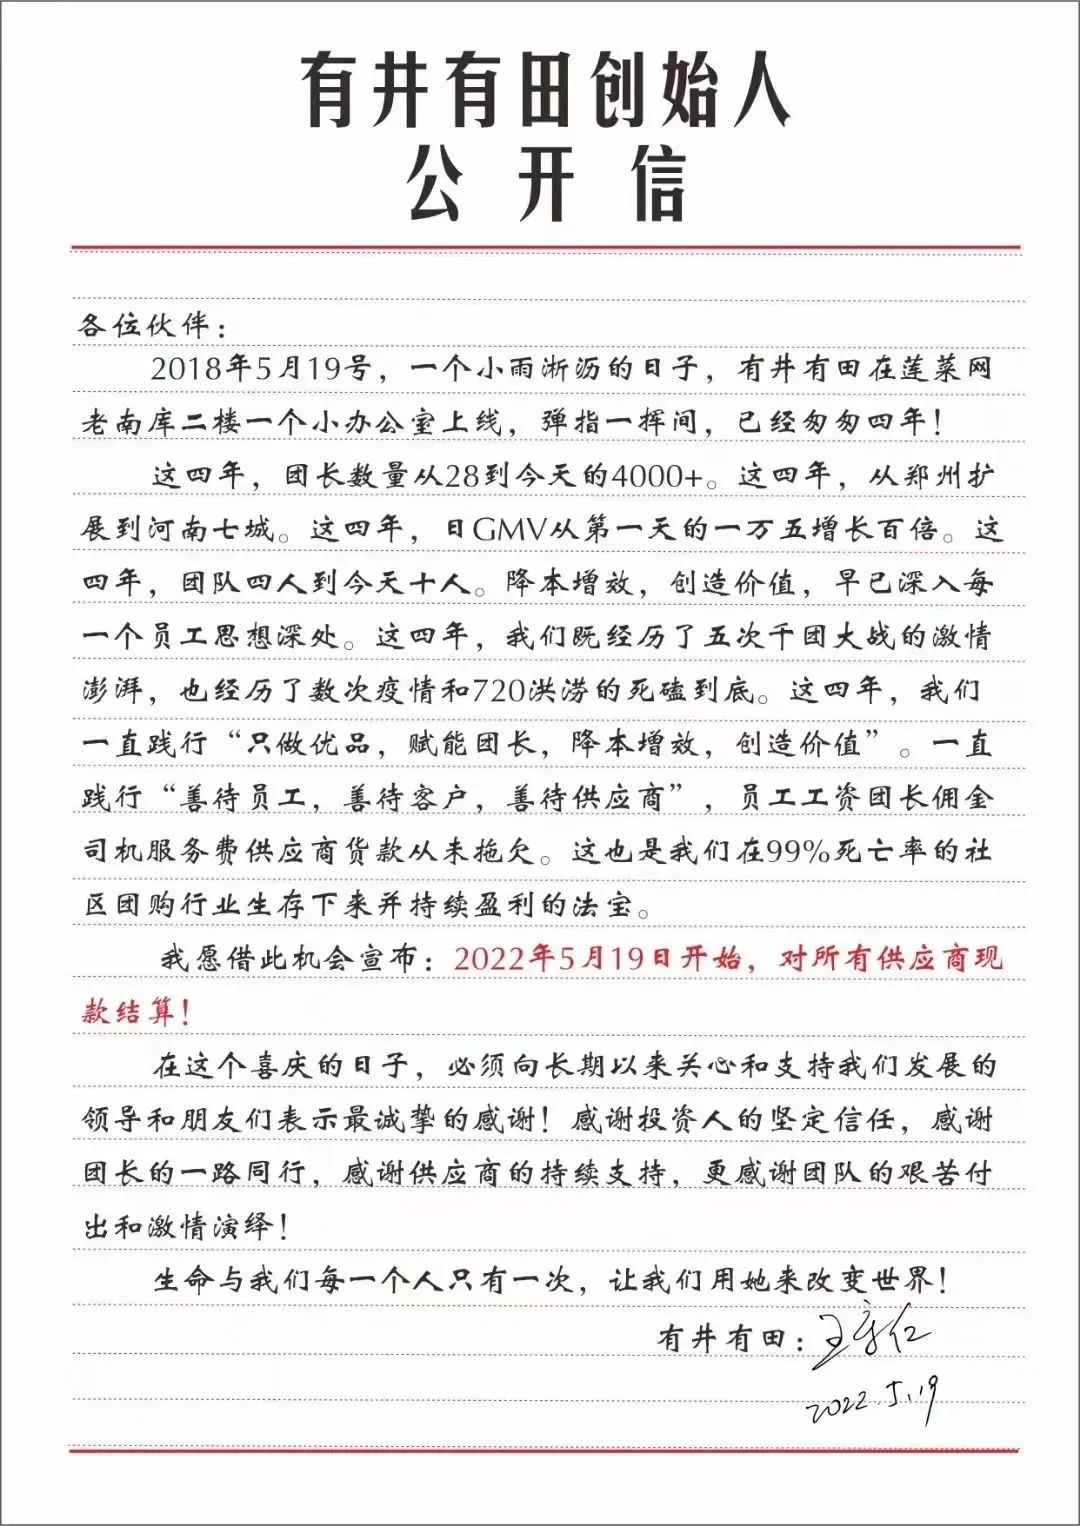 有井有田创始人
公开信
各位伙伴：
2018年5月19号，一个小雨淅沥的日子，有井有田在莲菜网
老南库二楼一个小办公室上线，弹指一挥间，已经匆匆四年！
这四年，团长数量从28到今天的4000+。这四年，从郑州扩
展到河南七城。这四年，日GMV从第一天的一万五增长百倍。这
四年，团队四人到今天十人。降本增效，创造价值，早已深入每
一个员工思想深处。这四年，我们既经历了五次千团大战的激情
澎湃，也经历了数次疫情和720洪涝的死磕到底。这四年，我们
一直践行“只做优品，赋能团长，降本增效，创造价值”。一直
践行“善待员工，善待客户，善待供应商”，员工工资团长佣金
司机服务费供应商货款从未拖欠。这也是我们在99%死亡率的社
区团购行业生存下来并持续盈利的法宝。
我愿借此机会宣布：2022年5月19日开始，对所有供应商现
款结算！
在这个喜庆的日子，必须向长期以来关心和支持我们发展的
领导和朋友们表示最诚挚的感谢！感谢投资人的坚定信任，感谢
团长的一路同行，感谢供应商的持续支持，更感谢团队的艰苦付
出和激情演绎！
生命与我们每一个人只有一次，让我们用她来改变世界！
有井有田：
2022.5.19